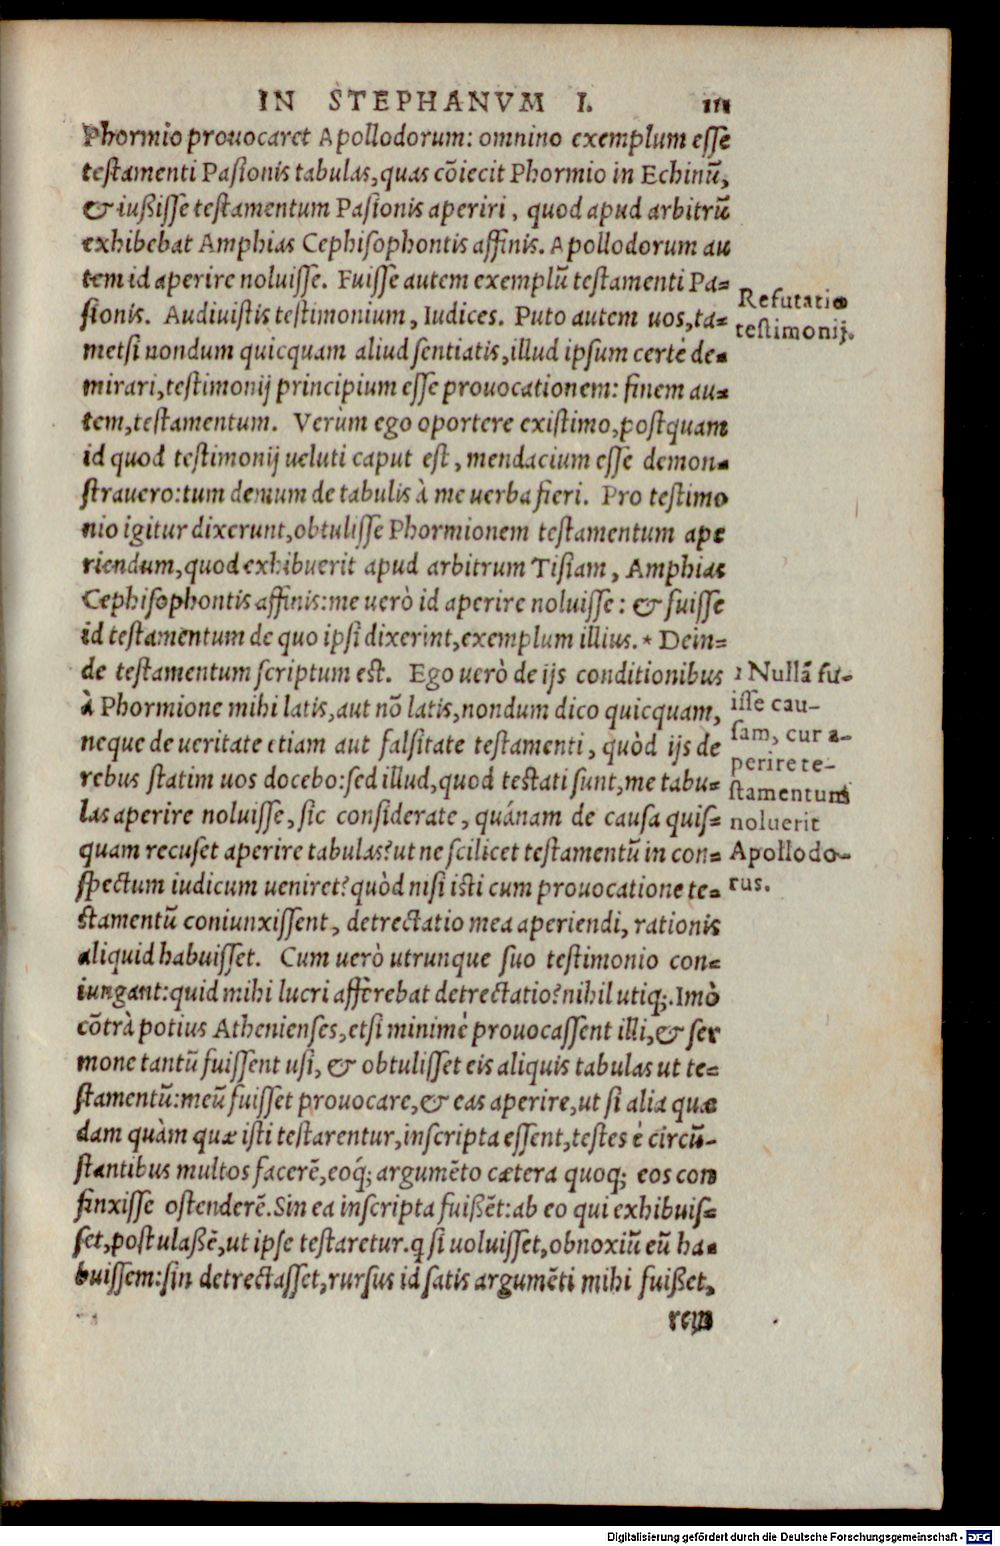 IN STEPHANVM I. 111
Phormio prouocaret Apollodorum: omnino exemplum esse
testamenti Pasionis tabulas, quas cõiecit Phormio in Echinũ,
& iußisse testamentum Pasionis aperiri, quod apud arbitrũ
exhibebat Amphias Cephisophontis affinis. Apollodorum au
tem id aperire noluisse. Fuisse autem exemplũ testamenti Pa-
sionis. Audiuistis testimonium, Iudices. Puto autem uos, ta-
metsi nondum quicquam aliud sentiatis, illud ipsum certè de-
mirari, testimonij principium esse prouocationem: finem au-
tem, testamentum. Verùm ego oportere existimo, postquam
id quod testimonij ueluti caput est, mendacium esse demon-
strauero: tum demum de tabulis à me uerba fieri. Pro testimo
nio igitur dixerunt, obtulisse Phormionem testamentum ape
riendum, quod exhibuerit apud arbitrum Tisiam, Amphias
Cephisophontis affinis: me uerò id aperire noluisse: & fuisse
id testamentum de quo ipsi dixerint, exemplum illius. * Dein-
de testamentum scriptum est. Ego uerò de ijs conditionibus
à Phormione mihi latis, aut nõ latis, nondum dico quicquam,
neque de ueritate etiam aut falsitate testamenti, quòd ijs de
rebus statim uos docebo: sed illud, quod testati sunt, me tabu-
las aperire noluisse, sic considerate, quánam de causa quis-
quam recuset aperire tabulas? ut ne scilicet testamentũ in con-
spectum iudicum ueniret? quòd nisi isti cum prouocatione te-
stamentũ coniunxissent, detrectatio mea aperiendi, rationis
aliquid habuisset. Cum uerò utrunque suo testimonio con-
iungant: quid mihi lucri afferebat detrectatio? nihil utiq;. Imò
cõtrà potius Athenienses, etsi minimè prouocassent illi, & ser
mone tantũ fuissent usi, & obtulisset eis aliquis tabulas ut te-
stamentũ: meũ fuisset prouocare, & eas aperire, ut si alia quæ
dam quàm quæ isti testarentur, inscripta essent, testes è circũ-
stantibus multos facerẽ, eoq́; argumẽto cætera quoq; eos con
finxisse ostenderẽ. Sin ea inscripta fuißẽt: ab eo qui exhibuis-
set, postulaßẽ, ut ipse testaretur. q̃ si uoluisset, obnoxiũ eũ ha-
buissem: sin detrectasset, rursus id satis argumẽti mihi fuißet,
rem
Refutatio
testimonij.
1 Nullã fu-
isse cau-
sam, cur a-
perire te-
stamentum
noluerit
Apollodo-
rus.
Digitalisierung gefördert durch die Deutsche Forschungsgemeinschaft - DFG